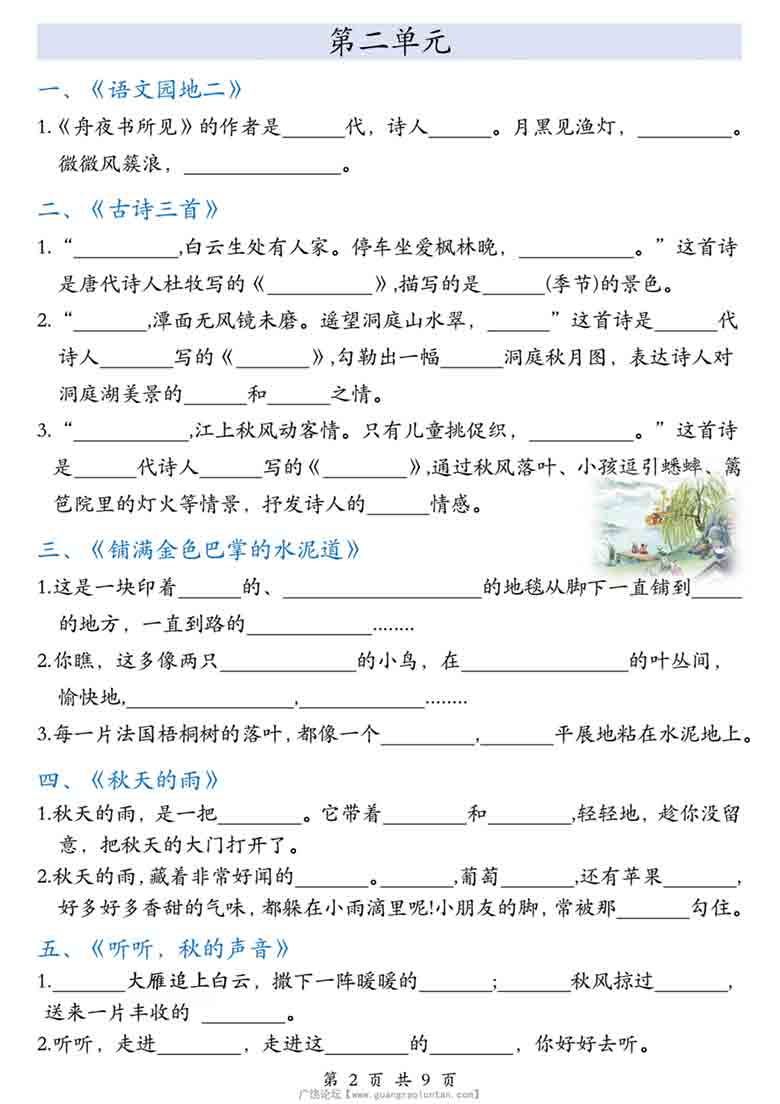 第二单元
一、《语文园地二》
1.《舟夜书所见》的作者是______代，诗人______。月黑见渔灯，_________。
微微风簇浪，_______________。
二、《古诗三首》
1. “__________,白云生处有人家。停车坐爱枫林晚，___________。”这首诗
是唐代诗人杜牧写的《__________》,描写的是______(季节)的景色。
2. “_______,潭面无风镜未磨。遥望洞庭山水翠，______”这首诗是______代
诗人_______写的《_______》,勾勒出一幅______洞庭秋月图，表达诗人对
洞庭湖美景的______和______之情。
3. “___________,江上秋风动客情。只有儿童挑促织，__________。”这首诗
是______代诗人______写的《________》,通过秋风落叶、小孩逗引蟋蟀、篱
笆院里的灯火等情景，抒发诗人的______情感。
三、《铺满金色巴掌的水泥道》
1.这是一块印着______的、___________________的地毯从脚下一直铺到_____
的地方，一直到路的____________........
2.你瞧，这多像两只_____________的小鸟，在________________的叶丛间，
愉快地,________________,____________........
3.每一片法国梧桐树的落叶，都像一个_________,_______平展地粘在水泥地上。
四、《秋天的雨》
1.秋天的雨，是一把________。它带着________和________,轻轻地，趁你没留
意，把秋天的大门打开了。
2.秋天的雨，藏着非常好闻的_______。_______,葡萄_______,还有苹果_______,
好多好多香甜的气味，都躲在小雨滴里呢!小朋友的脚，常被那_______勾住。
五、《听听，秋的声音》
1._______大雁追上白云，撒下一阵暖暖的_______;_______秋风掠过_______,
送来一片丰收的 ________。
2.听听，走进________，走进这________的________，你好好去听。
第 2 页 共 9 页
广饶论坛【www.guangraoluntan.com】